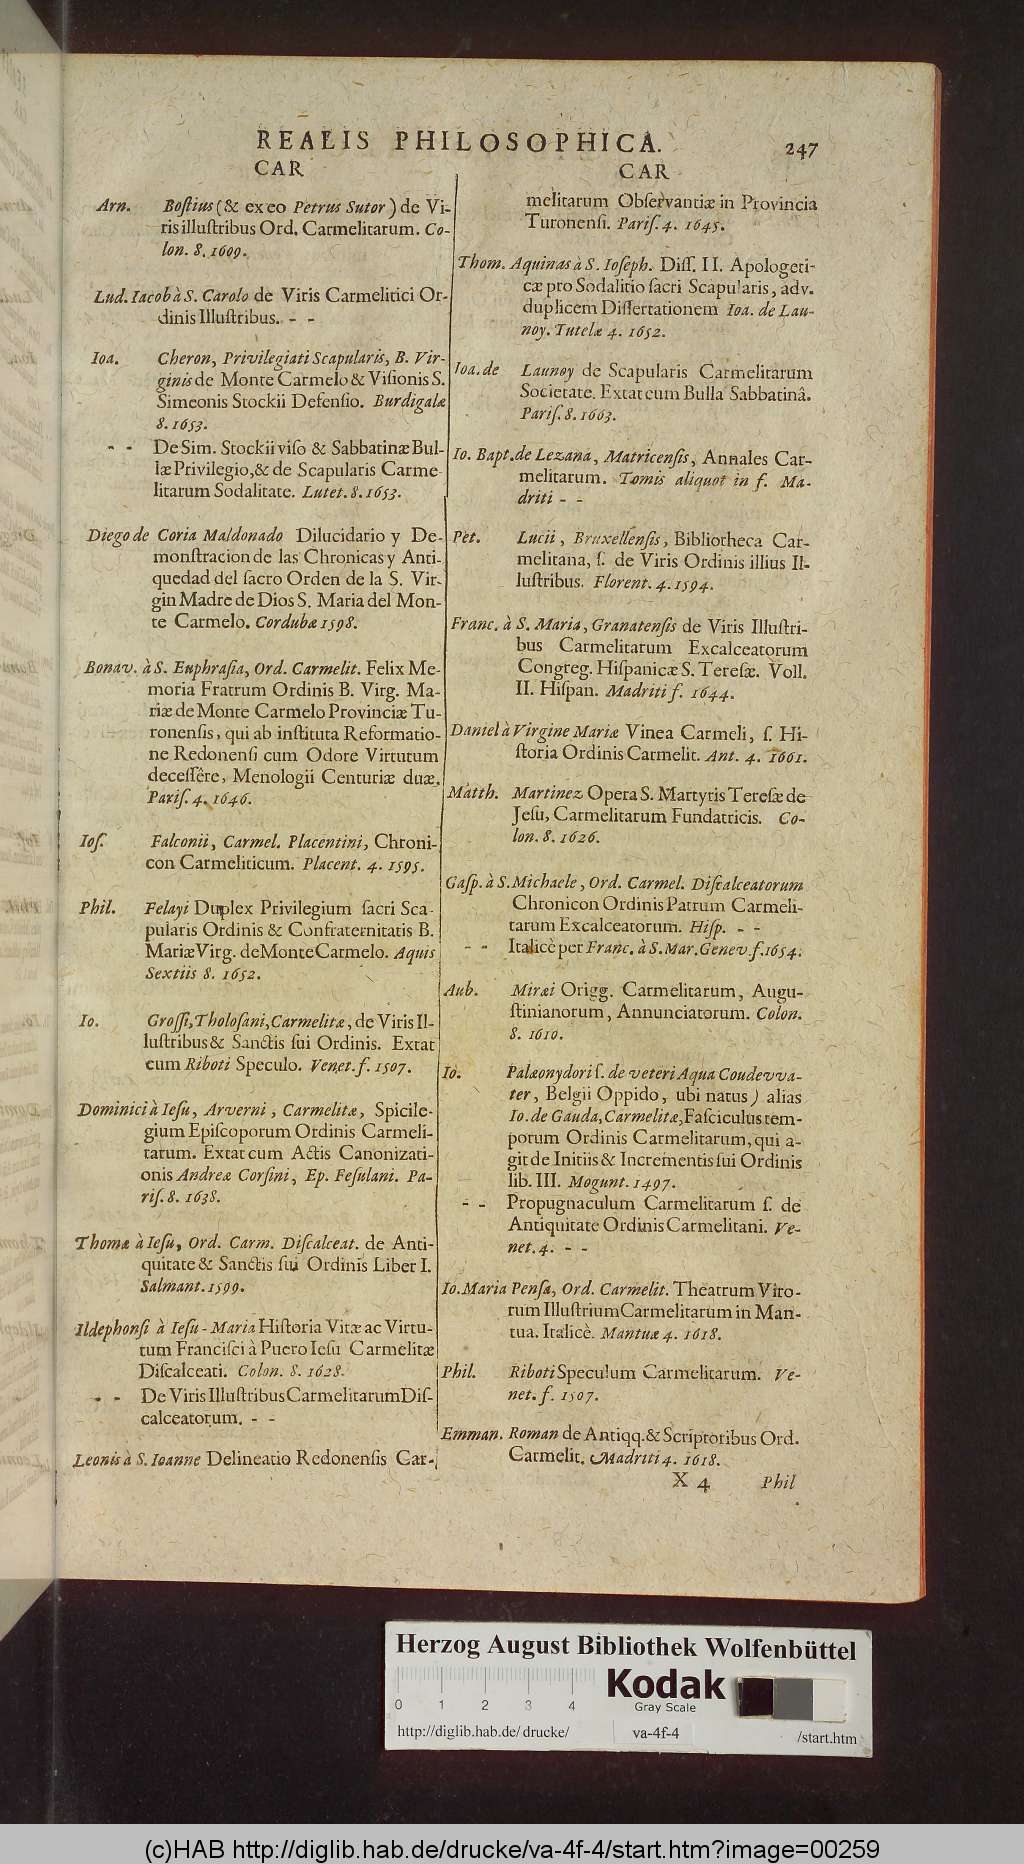 REALIS PHILOSOPHICA. 247
CAR
Arn. Boſtius (& ex eo Petrus Sutor) de Vi-
ris illuſtribus Ord. Carmelitarum. Co-
lon. 8. 1609.
Lud. Iacob à S. Carolo de Viris Carmelitici Or-
dinis Illuſtribus. - -
Ioa. Cheron, Privilegiati Scapularis, B. Vir-
ginis de Monte Carmelo & Viſionis S.
Simeonis Stockii Defenſio. Burdigalæ
8. 1653.
- - De Sim. Stockii viſo & Sabbatinæ Bul-
læ Privilegio, & de Scapularis Carme-
litarum Sodalitate. Lutet. 8. 1653.
Diego de Coria Maldonado Dilucidario y De-
monſtracion de las Chronicas y Anti-
quedad del ſacro Orden de la S. Vir-
gin Madre de Dios S. Maria del Mon-
te Carmelo. Cordubæ 1598.
Bonav. à S. Euphraſia, Ord. Carmelit. Felix Me-
moria Fratrum Ordinis B. Virg. Ma-
riæ de Monte Carmelo Provinciæ Tu-
ronenſis, qui ab inſtituta Reformatio-
ne Redonenſi cum Odore Virtutum
deceſſêre, Menologii Centuriæ duæ.
Pariſ. 4. 1646.
Ioſ. Falconii, Carmel. Placentini, Chroni-
con Carmeliticum. Placent. 4. 1595.
Phil. Felayi Duplex Privilegium ſacri Sca-
pularis Ordinis & Confraternitatis B.
Mariæ Virg. de Monte Carmelo. Aquis
Sextiis 8. 1652.
Io. Groſſi, Tholoſani, Carmelitæ, de Viris Il-
luſtribus & Sanctis ſui Ordinis. Extat
cum Riboti Speculo. Venet. f. 1507.
Dominici à Ieſu, Arverni, Carmelitæ, Spicile-
gium Epiſcoporum Ordinis Carmeli-
tarum. Extat cum Actis Canonizati-
onis Andreæ Corſini, Ep. Feſulani. Pa-
riſ. 8. 1638.
Thomæ à Ieſu, Ord. Carm. Diſcalceat. de Anti-
quitate & Sanctis ſui Ordinis Liber I.
Salmant. 1599.
Ildephonſi à Ieſu-Maria Hiſtoria Vitæ ac Virtu-
tum Franciſci à Puero Ieſu Carmelitæ
Diſcalceati. Colon. 8. 1628.
- - De Viris Illuſtribus Carmelitarum Diſ-
calceatorum. - -
Leonis à S. Ioanne Delineatio Redonenſis Car-
CAR
melitarum Obſervantiæ in Provincia
Turonenſi. Pariſ. 4. 1645.
Thom. Aquinas à S. Ioſeph. Diſſ. II. Apologeti-
cæ pro Sodalitio ſacri Scapularis, adv.
duplicem Diſſertationem Ioa. de Lau-
noy. Tutelæ 4. 1652.
Ioa. de Launoy de Scapularis Carmelitarum
Societate. Extat cum Bulla Sabbatinâ.
Pariſ. 8. 1663.
Io. Bapt. de Lezana, Matricenſis, Annales Car-
melitarum. Tomis aliquot in f. Ma-
driti - -
Pet. Lucii, Bruxellenſis, Bibliotheca Car-
melitana, ſ. de Viris Ordinis illius Il-
luſtribus. Florent. 4. 1594.
Franc. à S. Maria, Granatenſis de Viris Illuſtri-
bus Carmelitarum Excalceatorum
Congreg. Hiſpanicæ S. Tereſæ. Voll.
II. Hiſpan. Madriti f. 1644.
Daniel à Virgine Mariæ Vinea Carmeli, ſ. Hi-
ſtoria Ordinis Carmelit. Ant. 4. 1661.
Matth. Martinez Opera S. Martyris Tereſæ de
Jeſu, Carmelitarum Fundatricis. Co-
lon. 8. 1626.
Gaſp. à S. Michaele, Ord. Carmel. Diſcalceatorum
Chronicon Ordinis Patrum Carmeli-
tarum Excalceatorum. Hiſp. - -
- - Italicè per Franc. à S. Mar. Genev. f. 1654.
Aub. Miræi Origg. Carmelitarum, Augu-
ſtinianorum, Annunciatorum. Colon.
8. 1610.
Io. Palæonydori ſ. de veteri Aqua Coudevva-
ter, Belgii Oppido, ubi natus) alias
Io. de Gauda, Carmelitæ, Faſciculus tem-
porum Ordinis Carmelitarum, qui a-
git de Initiis & Incrementis ſui Ordinis
lib. III. Mogunt. 1497.
- - Propugnaculum Carmelitarum ſ. de
Antiquitate Ordinis Carmelitani. Ve-
net. 4. - -
Io. Maria Penſa, Ord. Carmelit. Theatrum Viro-
rum Illuſtrium Carmelitarum in Man-
tua. Italicè. Mantuæ 4. 1618.
Phil. Riboti Speculum Carmelitarum. Ve-
net. f. 1507.
Emman. Roman de Antiqq. & Scriptoribus Ord.
Carmelit. Madriti 4. 1618.
X 4 Phil
Herzog August Bibliothek Wolfenbüttel
0 1 2 3 4
Kodak
Gray Scale
http://diglib.hab.de/drucke/ va-4f-4 /start.htm
(c)HAB http://diglib.hab.de/drucke/va-4f-4/start.htm?image=00259